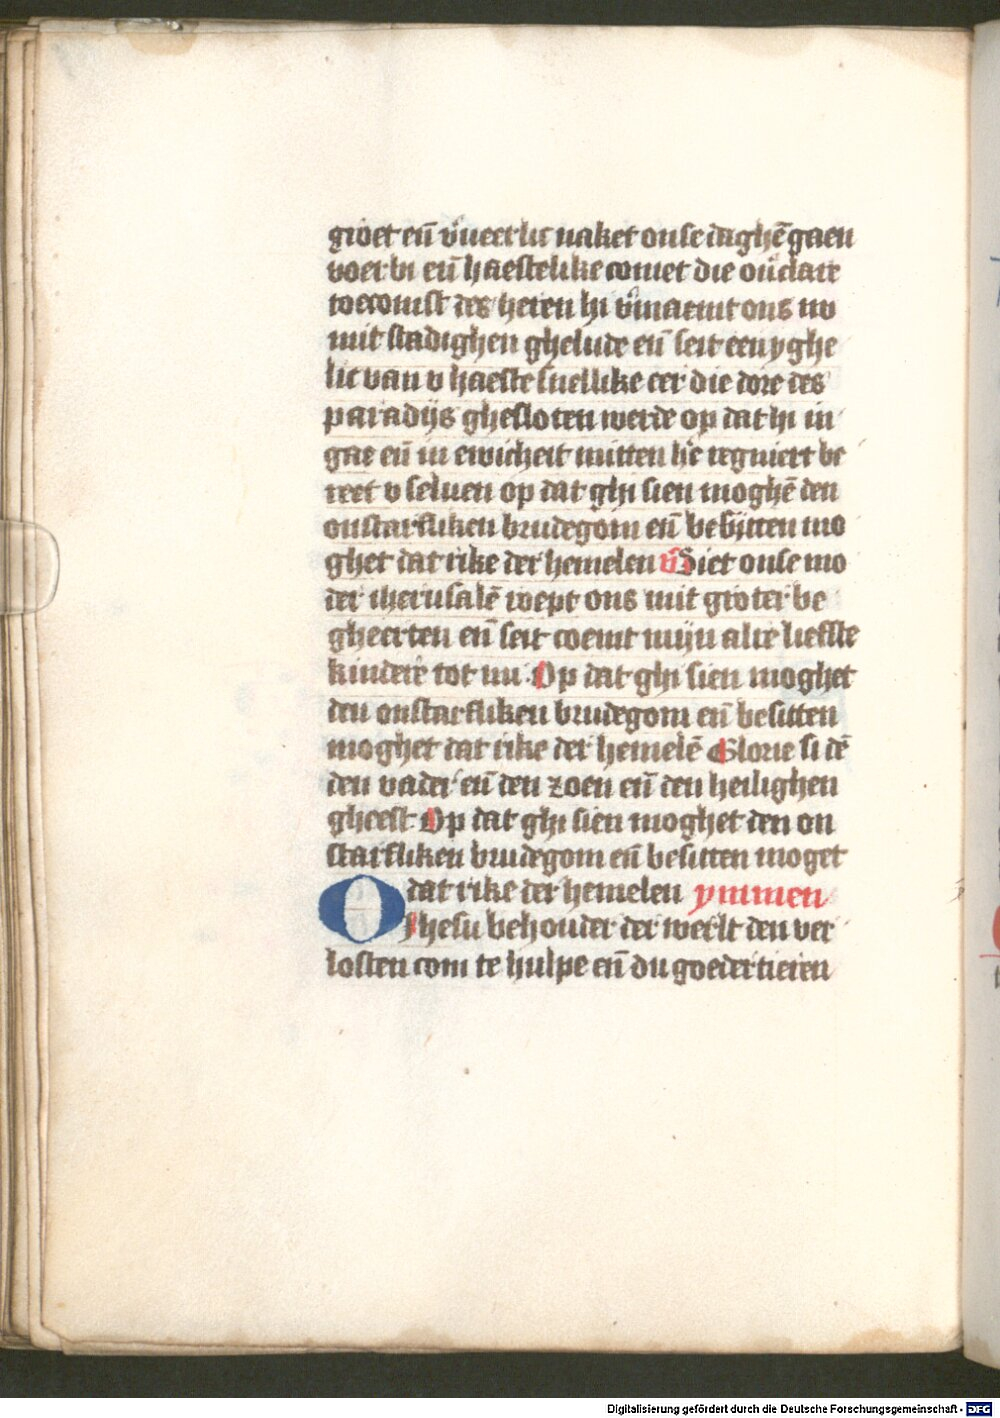 groet eñ v̾veerlic naket onse daghē gaen
voerbi eñ haestelike comet die oūclaer
toecomst des heren hi v̾maent ons nv
mit stadighen ghelude eñ seit een yghe
lic van v haeste snellike eer die dore des
paradijs ghesloten werde op dat hi in
gae eñ in ewicheit mitten he᷒ regniert be
reet v seluen op dat ghi sien moghē den
onstarfliken brudegom eñ besitten mo
ghet dat rike der hemelen v̾ Siet onse mo
der iherusalē roept ons mit groter be
gheerten eñ seit coemt mijn alre liefste
kindere tot mi Op dat ghi sien moghet
den onstarfliken brudegom eñ besitten
moghet dat rike der hemelē Glorie si dē
den vader eñ den zoen eñ den heilighen
gheest Op dat ghi sien moghet den on
starfliken brudegom eñ besitten moget
dat rike der hemelen ymmen
O Ihesu behouder der werlt den ver
losten com te hulpe eñ du goedertieren
Digitalisierung gefördert durch die Deutsche Forschungsgemeinschaft - DFG